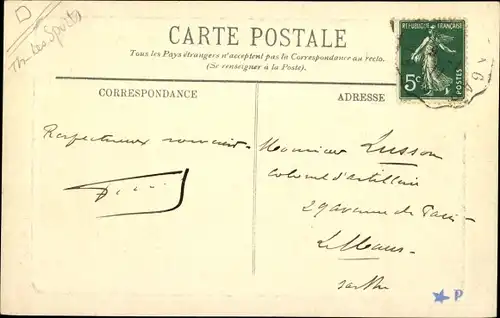 D
Th. Les Sports
CARTE POSTALE
Tous les Pays étrangers n'acceptent pas la Correspondance au recto.
(Se renseigner à la Poste).
REPUBLIQUE FRANÇAISE
5c
POSTES
CORRESPONDANCE
ADRESSE
Respectueux souvenir
Monsieur Lusson
Colonel d'artillerie
29 avenue de Paris
Le Mans
Sarthe
P